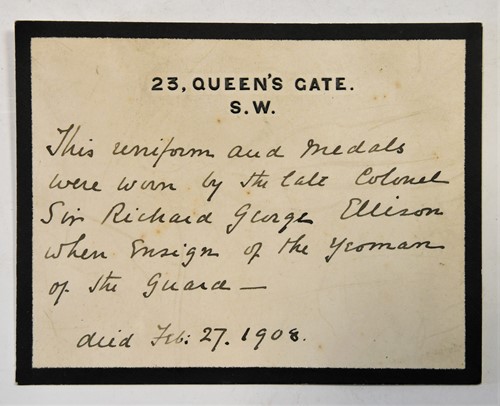 23, QUEEN'S GATE.
S.W.
This uniform and medals
were worn by the late Colonel
Sir Richard George Ellison
when Ensign of the Yeoman
of the Guard —
died Feb: 27. 1908.